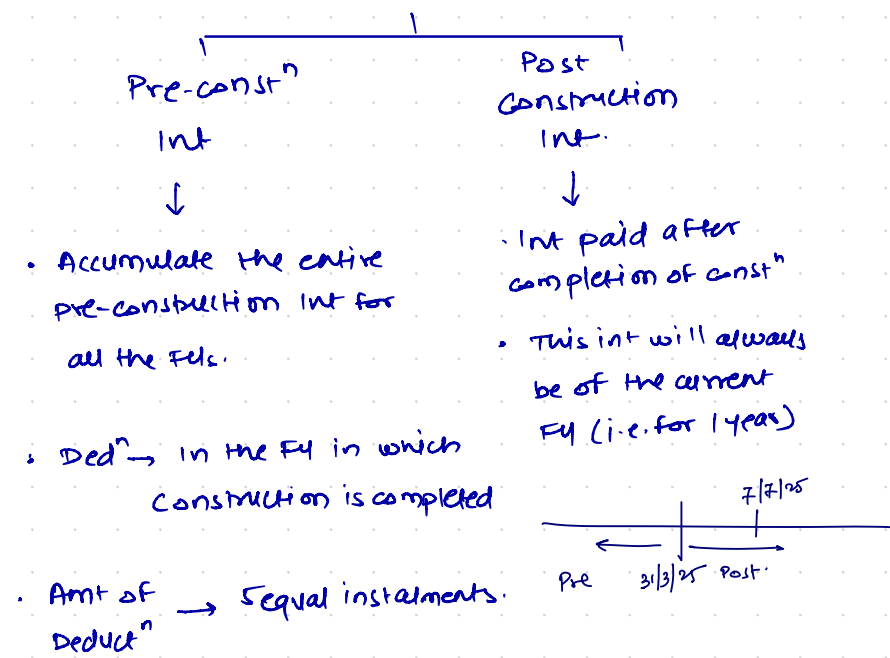 Pre-constⁿ
Int
• Accumulate the entire
pre-construction Int for
all the FYs.
• Dedⁿ → In the FY in which
Construction is completed
• Amt of
Deductⁿ → 5 equal instalments.
Post
Construction
Int.
• Int paid after
completion of constⁿ
• This int will always
be of the current
FY (i.e. for 1 year)
7/7/25
Pre 31/3/25 Post.